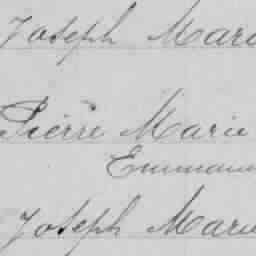 Joseph Marie
Pierre Marie
Emmanuel
Joseph Marie